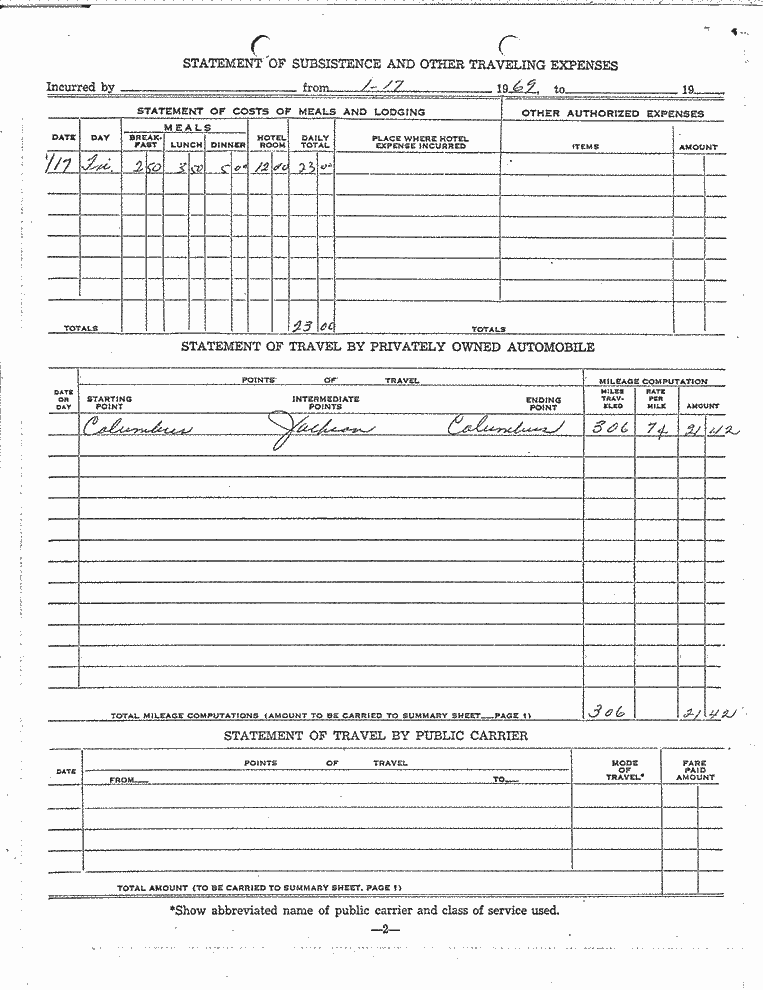 STATEMENT OF SUBSISTENCE AND OTHER TRAVELING EXPENSES
Incurred by from 1-17 1969, to 19
STATEMENT OF COSTS OF MEALS AND LODGING OTHER AUTHORIZED EXPENSES
DATE DAY MEALS BREAK-FAST LUNCH DINNER HOTEL ROOM DAILY TOTAL PLACE WHERE HOTEL EXPENSE INCURRED ITEMS AMOUNT
1/17 Fri. 2 50 3 50 5 00 12 00 23 00
TOTALS 23 00 TOTALS
STATEMENT OF TRAVEL BY PRIVATELY OWNED AUTOMOBILE
POINTS OF TRAVEL MILEAGE COMPUTATION
DATE OR DAY STARTING POINT INTERMEDIATE POINTS ENDING POINT MILES TRAV-ELED RATE PER MILE AMOUNT
Columbus Jackson Columbus 306 7¢ 21 42
TOTAL MILEAGE COMPUTATIONS (AMOUNT TO BE CARRIED TO SUMMARY SHEET PAGE 1) 306 21 42
STATEMENT OF TRAVEL BY PUBLIC CARRIER
DATE POINTS OF TRAVEL MODE OF TRAVEL* FARE PAID AMOUNT
FROM TO
TOTAL AMOUNT (TO BE CARRIED TO SUMMARY SHEET, PAGE 1)
*Show abbreviated name of public carrier and class of service used.
—2—